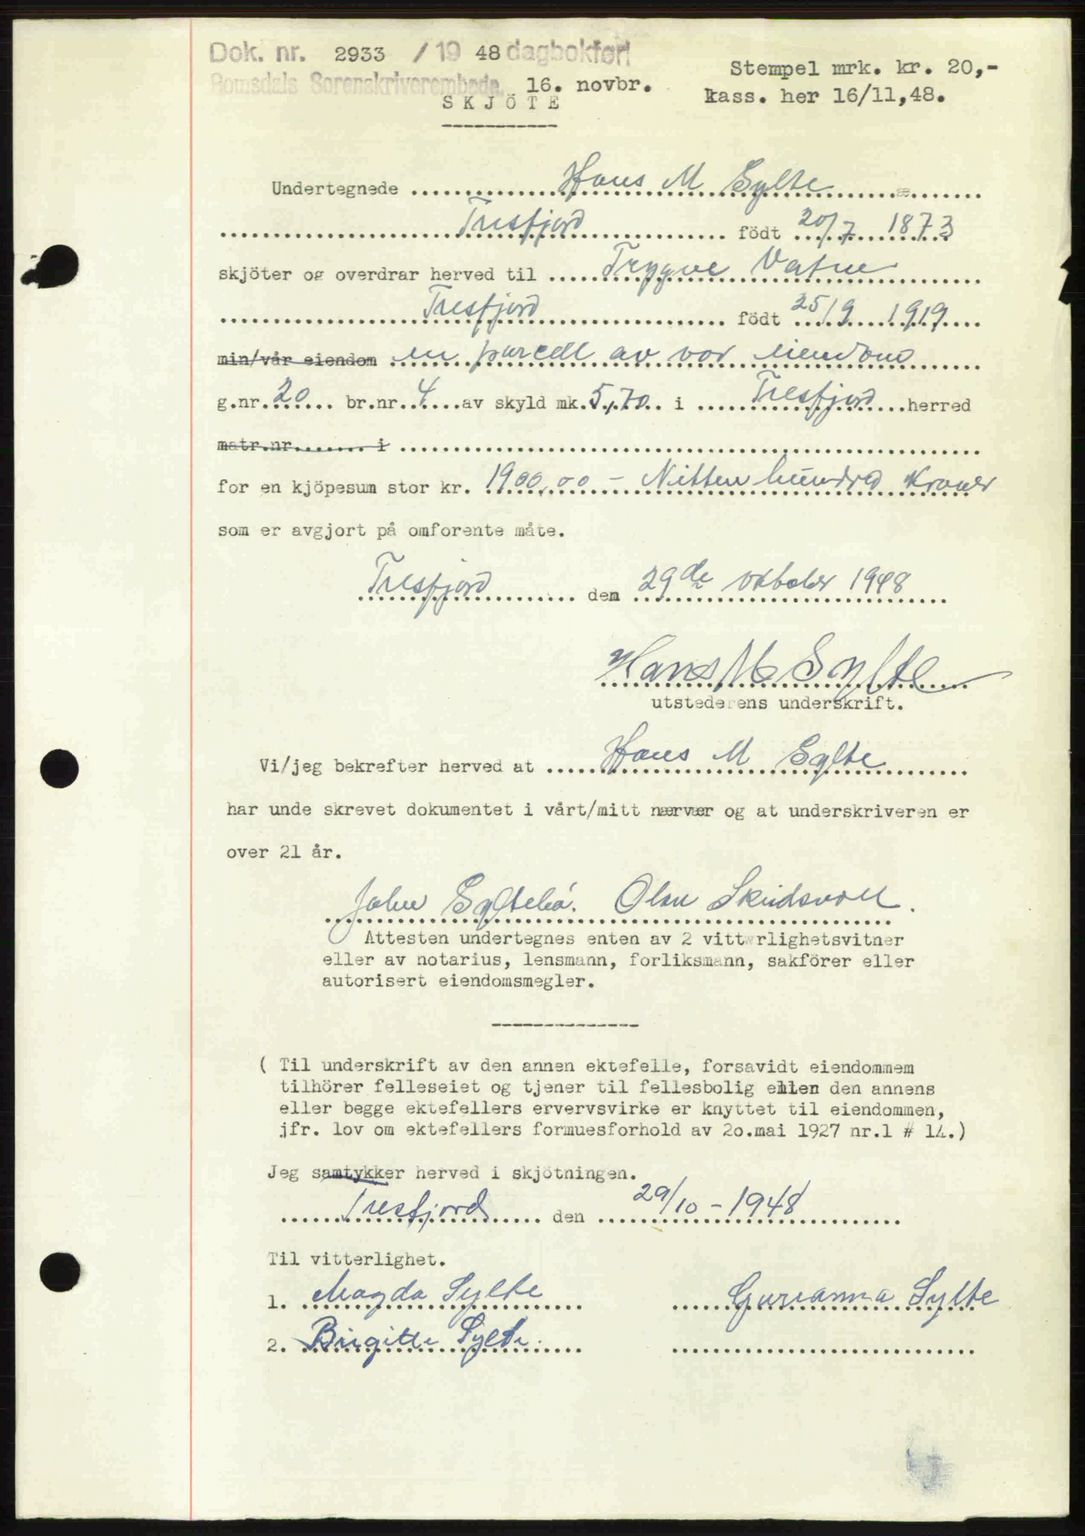 Dok. nr. 2933 / 19 48 dagbokført
Romsdals Sorenskriverembede 16. novbr.
Stempel mrk. kr. 20,-
kass. her 16/11,48.
S K J Ö T E
Undertegnede Hans M Sylte
Tresfjord födt 20/7 1873
skjöter og overdrar herved til Trygve Vatne
Tresfjord födt 25/9 1919
min/vår eiendom en parcell av vor eiendom
g.nr. 20 br.nr. 4 av skyld mk. 5,70 i Tresfjord herred
matr.nr. i
for en kjöpesum stor kr. 1900,00 - Nitten hundred Kroner
som er avgjort på omforente måte.
Tresfjord den 29de oktober 1948
Hans M Sylte
utstederens underskrift.
Vi/jeg bekrefter herved at Hans M Sylte
har unde skrevet dokumentet i vårt/mitt nærvær og at underskriveren er
over 21 år.
John Syltebö. Olav Skeidsvoll.
Attesten undertegnes enten av 2 vitterlighetsvitner
eller av notarius, lensmann, forliksmann, sakförer eller
autorisert eiendomsmegler.
( Til underskrift av den annen ektefelle, forsavidt eiendommem
tilhörer felleseiet og tjener til fellesbolig ellen den annens
eller begge ektefellers ervervsvirke er knyttet til eiendommen,
jfr. lov om ektefellers formuesforhold av 2o.mai 1927 nr.1 # 14.)
Jeg samtykker herved i skjötningen.
Tresfjord den 29/10 - 1948
Til vitterlighet.
1. Magda Sylte Gurianna Sylte
2. Birgitte Sylte.